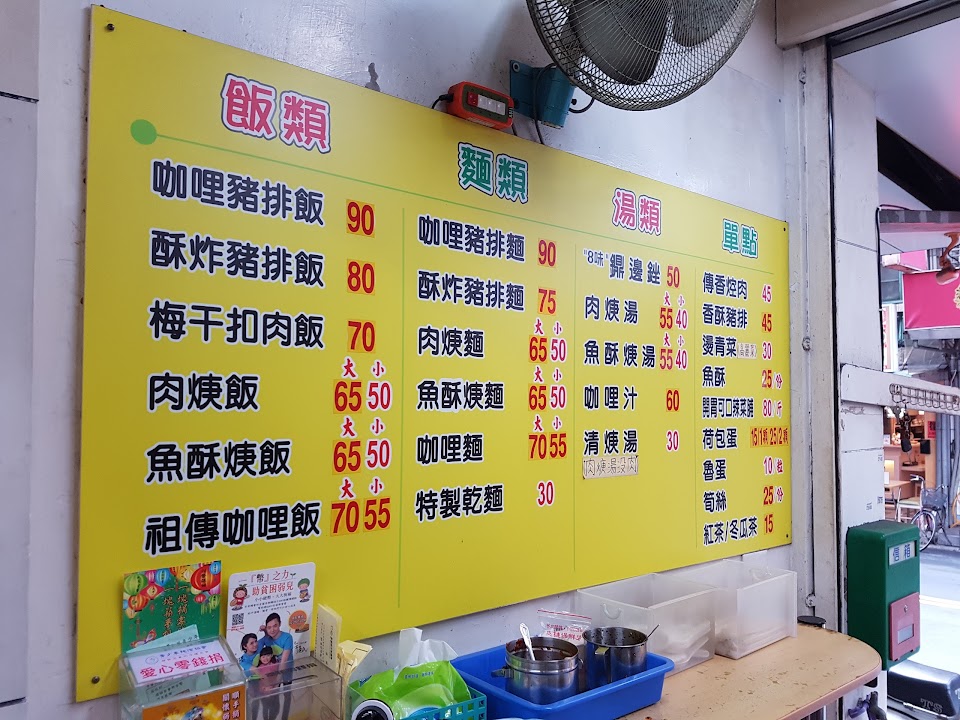 飯類
咖哩豬排飯 90
酥炸豬排飯 80
梅干扣肉飯 70
大 小
肉焿飯 65 50
大 小
魚酥焿飯 65 50
大 小
祖傳咖哩飯 70 55
麵類
咖哩豬排麵 90
酥炸豬排麵 75
大 小
肉焿麵 65 50
大 小
魚酥焿麵 65 50
大 小
咖哩麵 70 55
特製乾麵 30
湯類
"8味"鼎邊銼 50
大 小
肉焿湯 55 40
大 小
魚酥焿湯 55 40
咖哩汁 60
清焿湯 30
肉焿湯沒肉
單點
傳香焢肉 45
香酥豬排 45
燙青菜 30
魚酥 25份
開胃可口辣菜脯 80/斤
荷包蛋 15/1顆 25/2顆
魯蛋 10粒
筍絲 25份
紅茶/冬瓜茶 15
『幣』之力
助貧困弱兒
愛心零錢捐
信箱